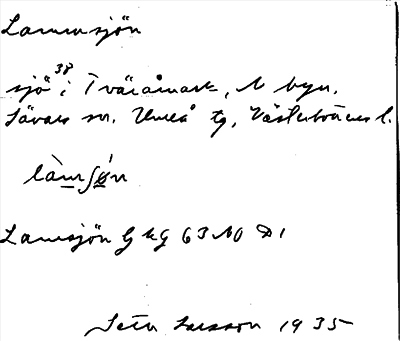 Lammsjön
sjö 38 i Tväråmark, N byn.
Sävars sn. Umeå tg, Västerbottens l.
làmʃǿn
Lamsjön G kg 63 NO D 1
Seth Larsson 1935